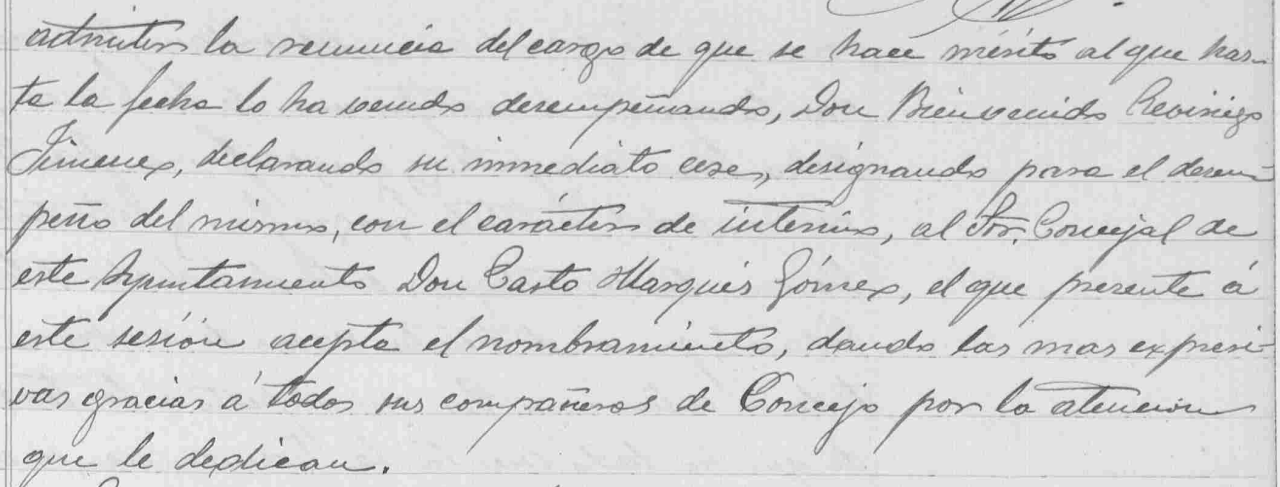 admitir la renuncia del cargo de que se hace mérito al que has-
ta la fecha lo ha venido desempeñando, Don Bienvenido
Jimenez, declarando su inmediato cese, designando para el desem-
peño del mismo, con el carácter de interino, al Sor. Concejal de
este Ayuntamiento Don Casto Marqués Gómez, el que presente á
este sesión acepta el nombramiento, dando las mas expresi-
vas gracias á todos sus compañeros de Concejo por la atencion
que le dedican.